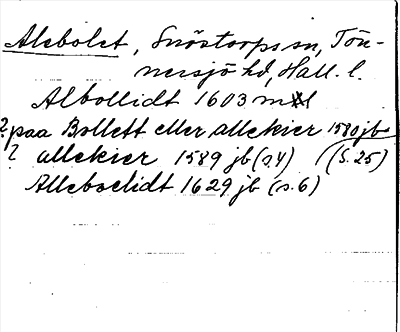 Alebolet, Snöstorps sn, Tön-
nersjö hd, Hall. l.
Albollidt 1603 ml
? paa Bollett eller allekier 1580 jb
? allekier 1589 jb (s.4) (s.25)
Alleboelidt 1629 jb (s.6)